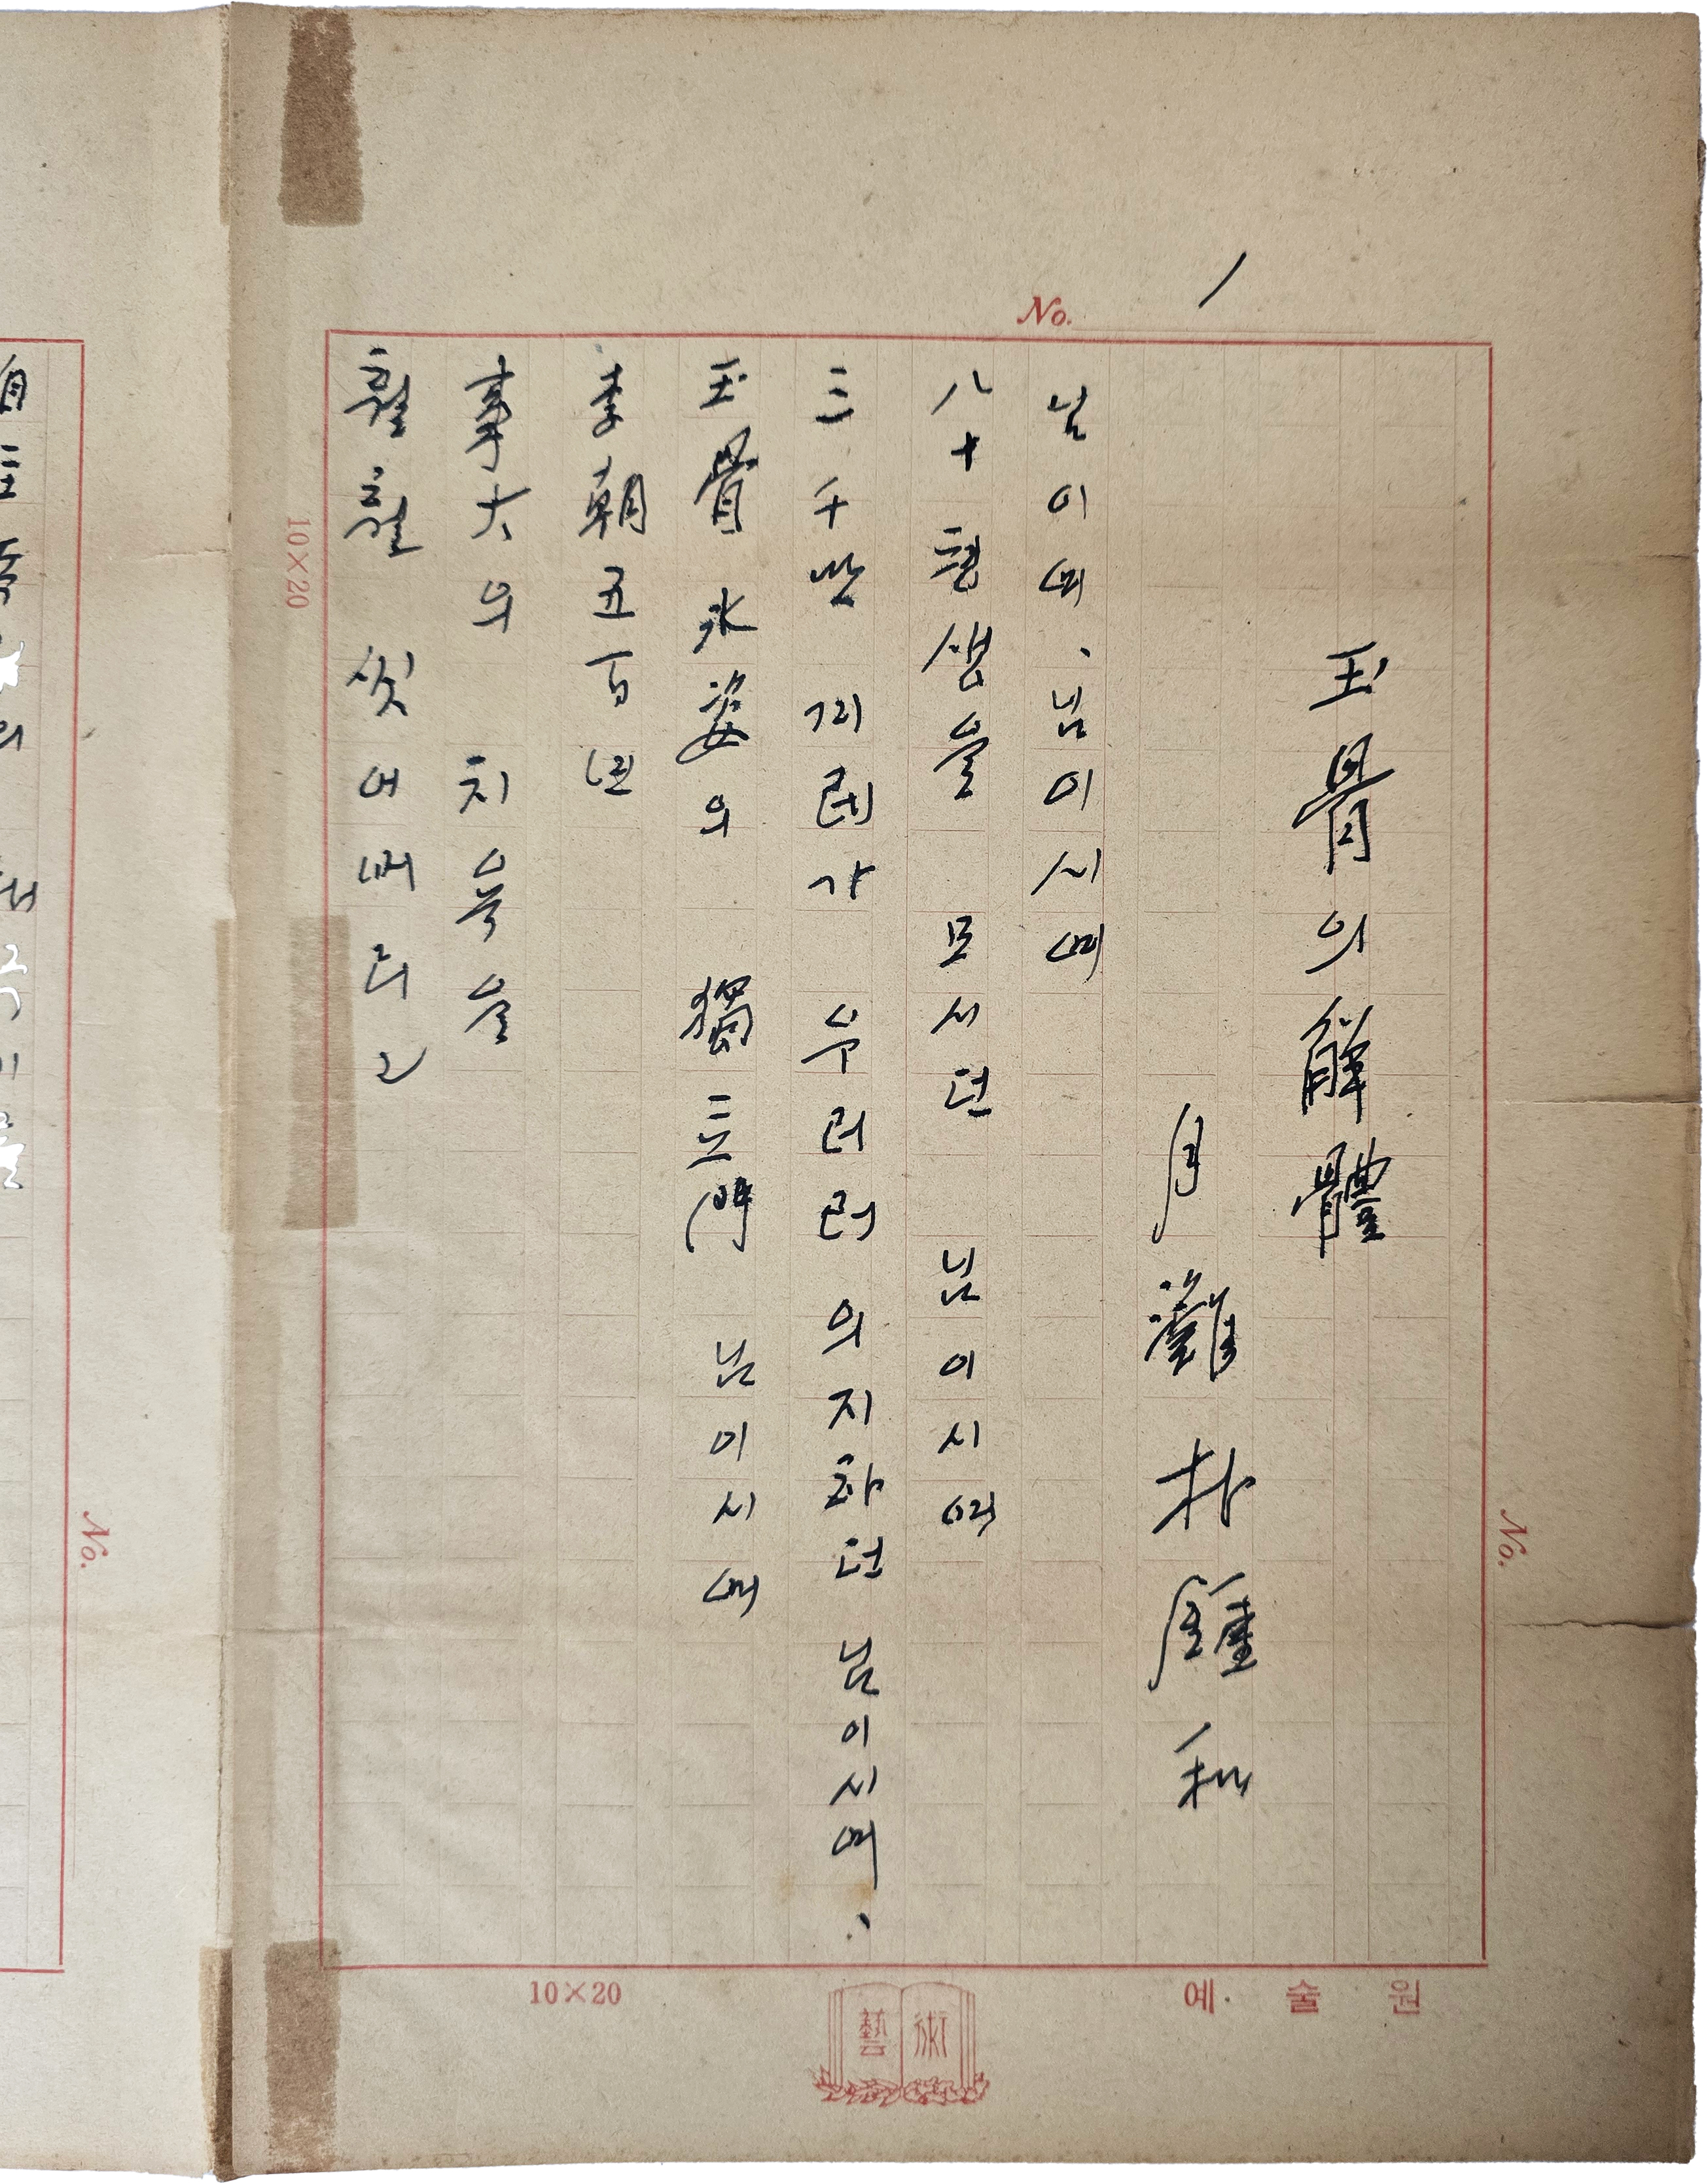 No. 1
玉骨의 解體
月灘 朴鍾和
님이여、님이시여
八十평생을 모시던 님이시여
三千만 겨레가 우러러 의지하던 님이시여、
玉骨 氷姿의 獨立門 님이시여
李朝五百년
事大의 치욕을
훨훨 씻어버리고
10×20
No.
No.
10×20
藝術
예술원